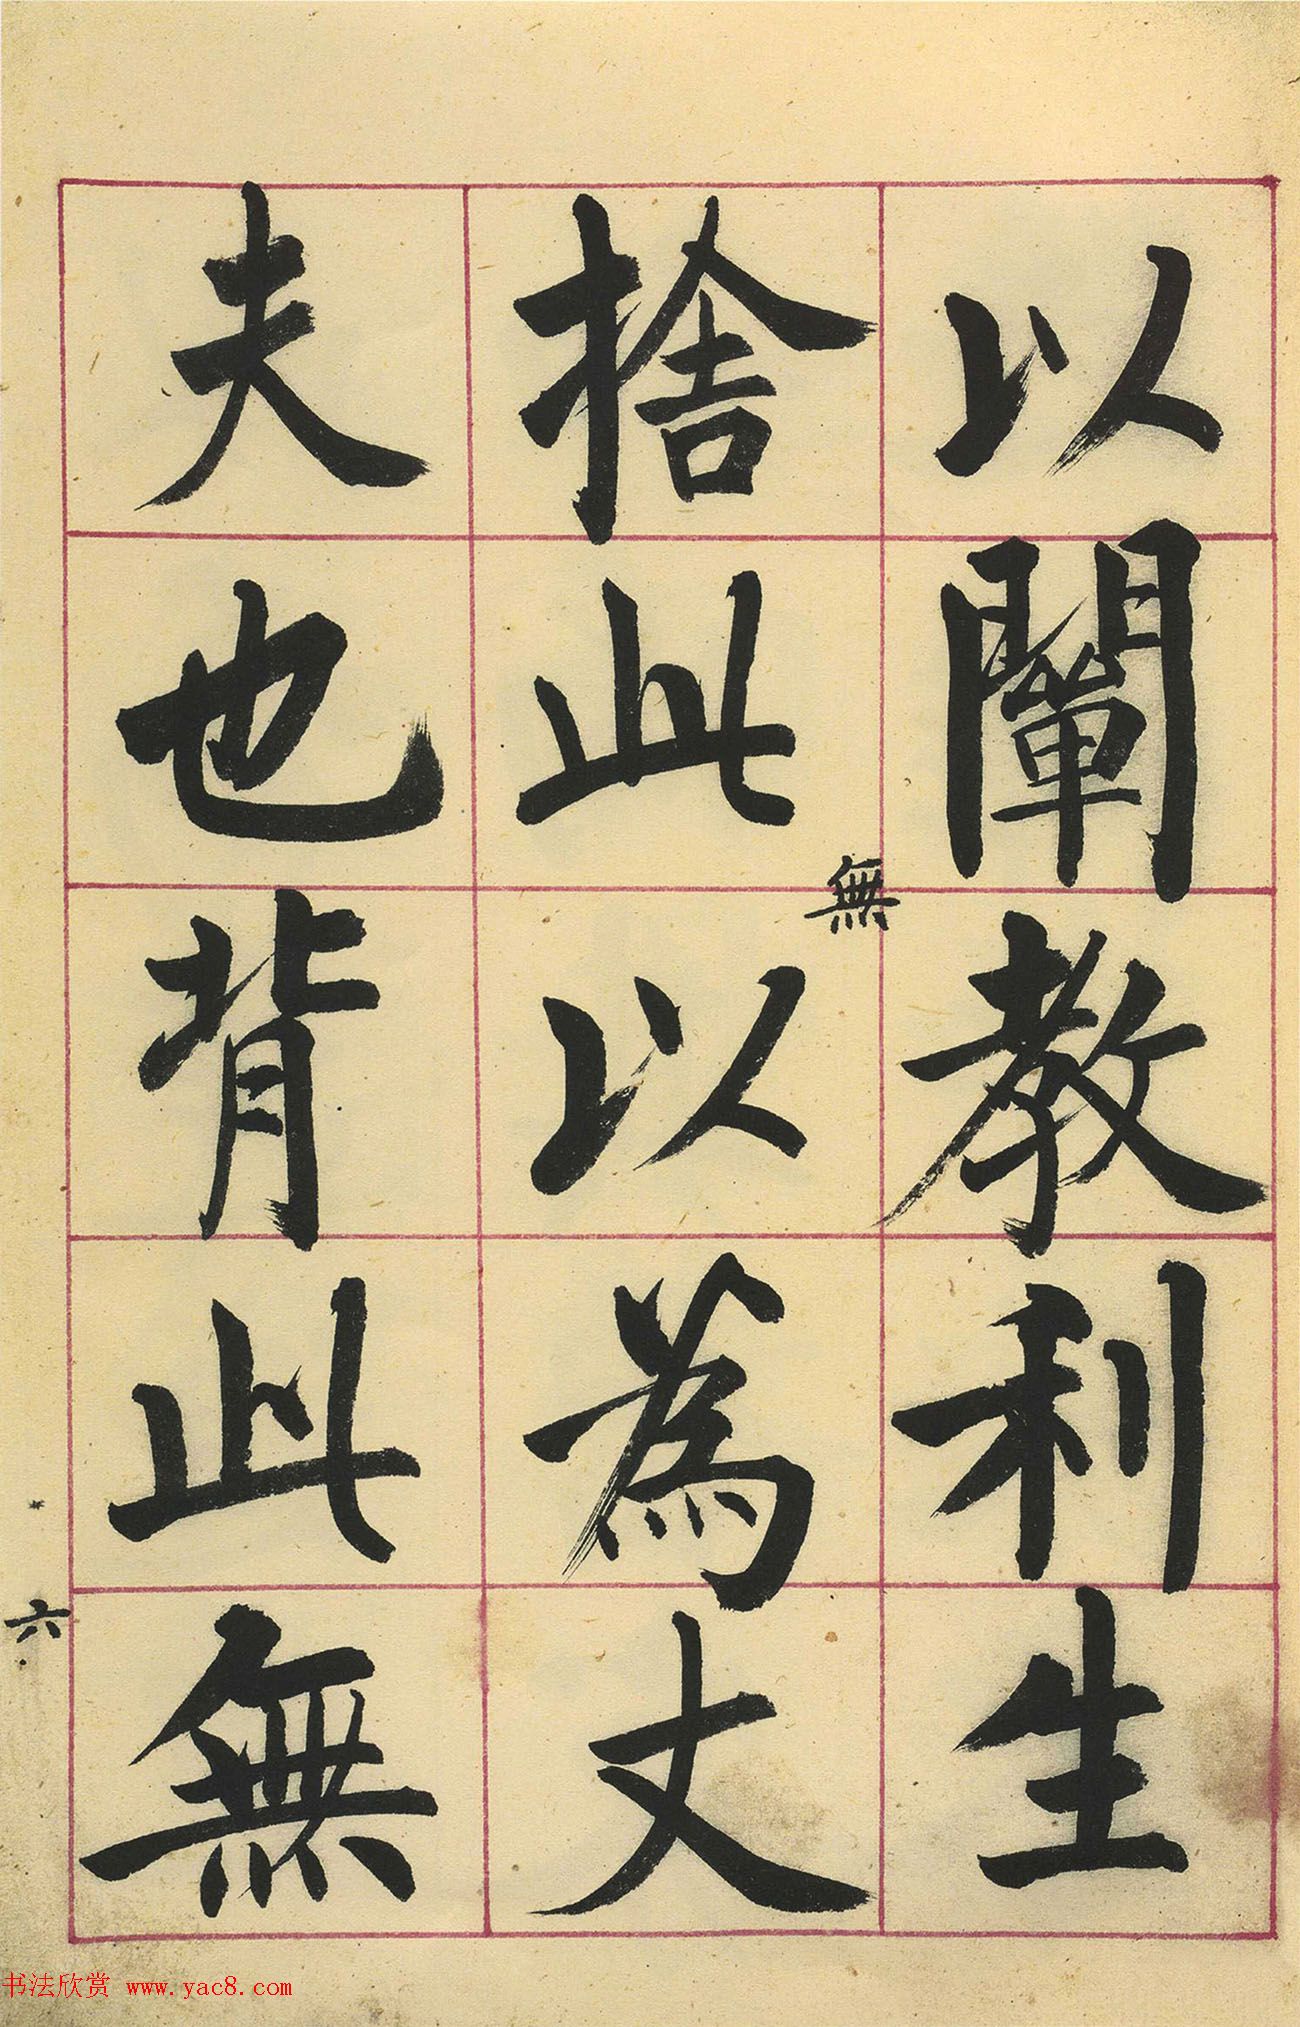 以闡教利生
捨此無以為丈
夫也背此無
六
书法欣赏 www.yac8.com